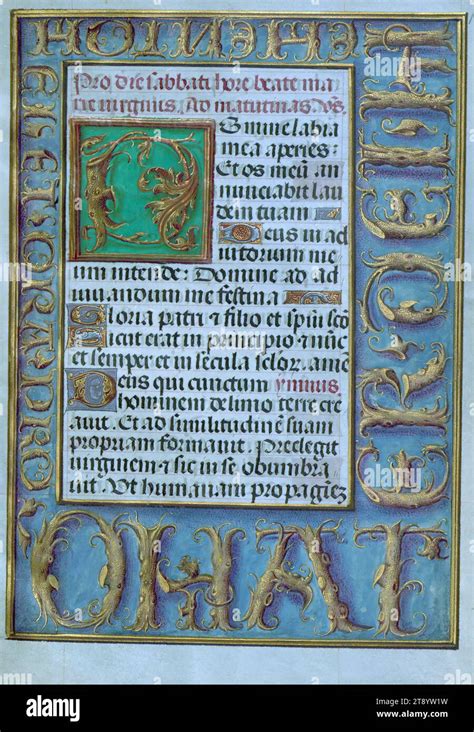 Pro die sabbati hore beate ma
rie virginis, Ad matutinas
Domine labia
mea aperies:
Et os meū an
nunciabit lau
dem tuam
Deus in ad
iutorium me
um intende: Domine ad ad
iuuandum me festina
Gloria patri & filio et spiū scō
Sicut erat in principio & nūc
et semper et in secula sclor. amē
Deus qui cunctum ymnus.
hominem de limo terre cre
auit. Et ad similitudinē suam
propriam formauit. Preelegit
virginem & sic in se obumbra
uit. Vt humanam propagēz
OHAT
alamy
Image ID: 2T8YW1W
www.alamy.com